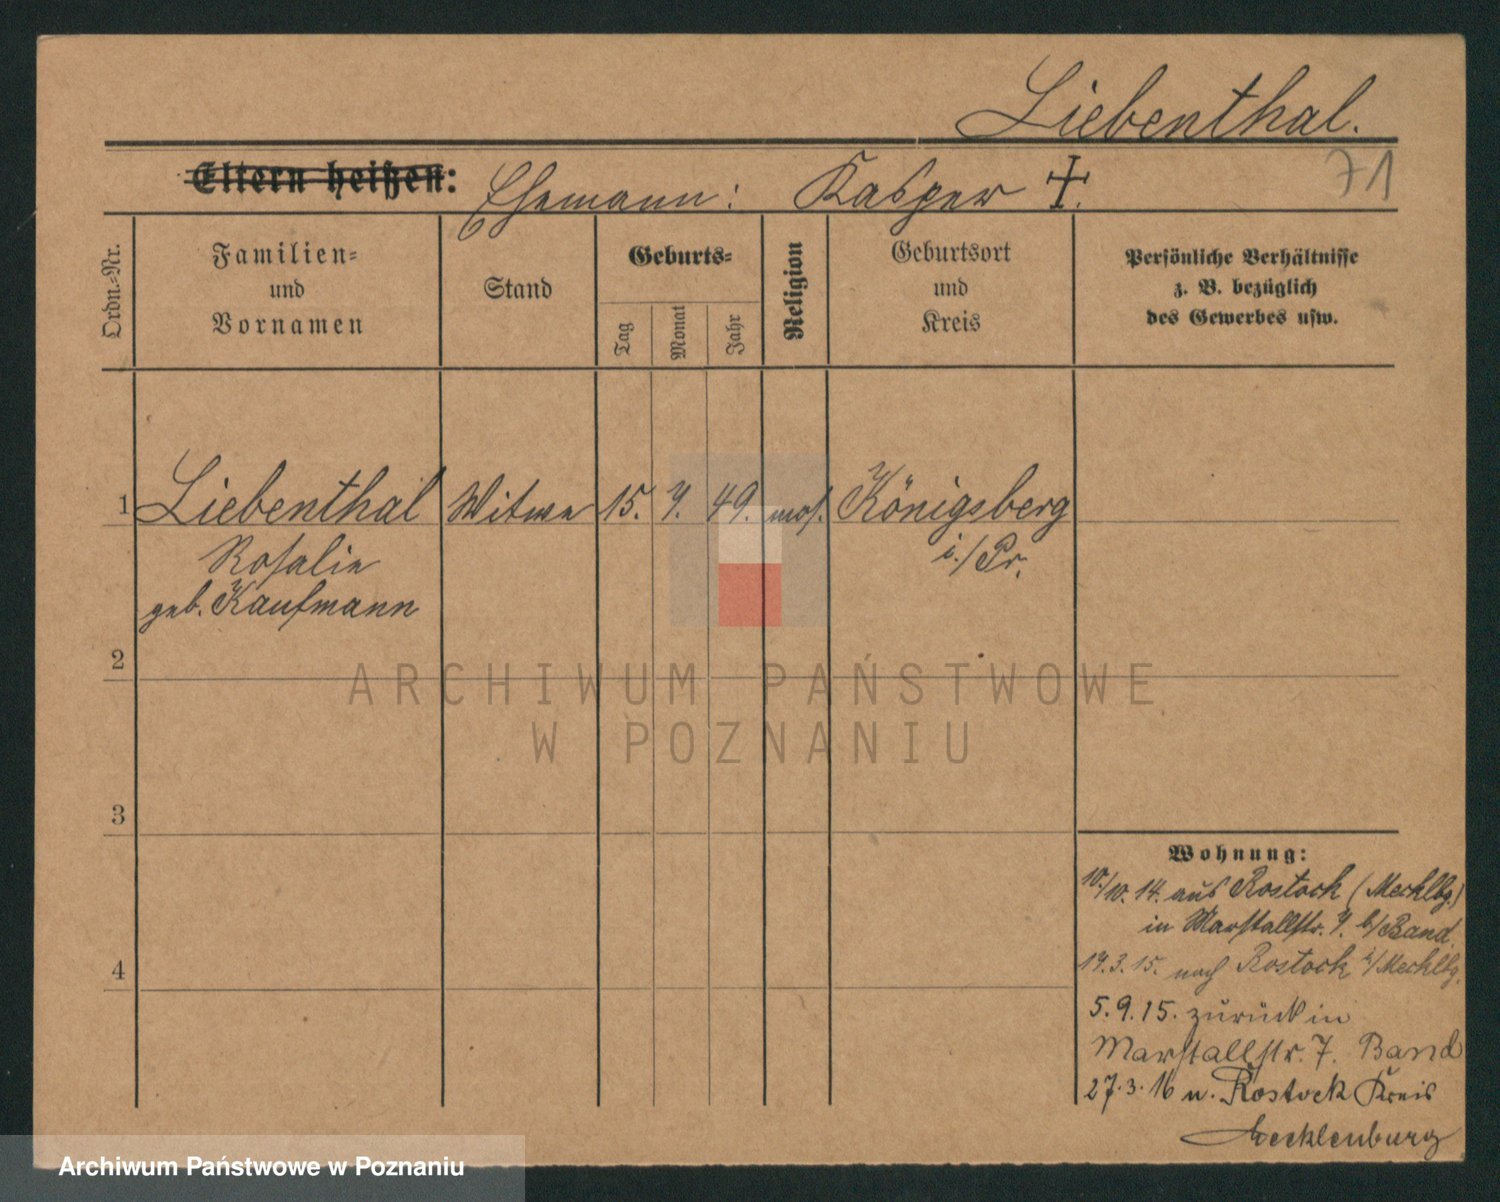 Liebenthal.
71
Eltern heißen: Ehemann: Kasper †.
Ordn.-Nr.
Familien-
und
Vornamen
Stand
Geburts-
Tag
Monat
Jahr
Religion
Geburtsort
und
Kreis
Persönliche Verhältnisse
z. B. bezüglich
des Gewerbes usw.
1 Liebenthal Witwe 15. 7. 49. mos. Königsberg
Rosalie i./Pr.
geb. Kaufmann
2
3
4
Wohnung:
10./10. 14. aus Rostock (Mecklbg.)
in Marstallstr. 7. b/Band.
19.3.15. nach Rostock i/Mecklbg.
5.9.15. zurück in
Marstallstr. 7. Band
27.3.16 n. Rostock Kreis
Mecklenburg
ARCHIWUM PAŃSTWOWE
W POZNANIU
Archiwum Państwowe w Poznaniu